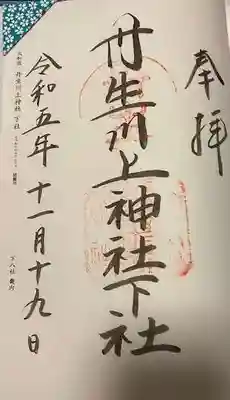 奉拝
丹生川上神社下社
令和五年十一月十九日
丹生川上神社 下社